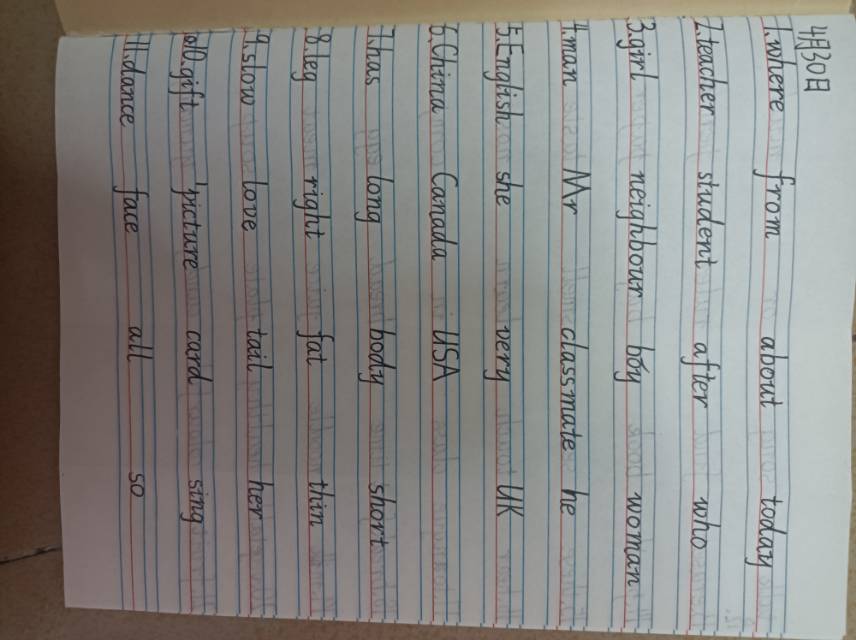 4月30日
1.where from about today
2.teacher student after who
3.girl neighbour boy woman
4.man Mr classmate he
5.English she very UK
6.China Canada USA
7.has long body short
8.leg right fat thin
9.slow love tail her
10.gift picture card sing
11.dance face all so